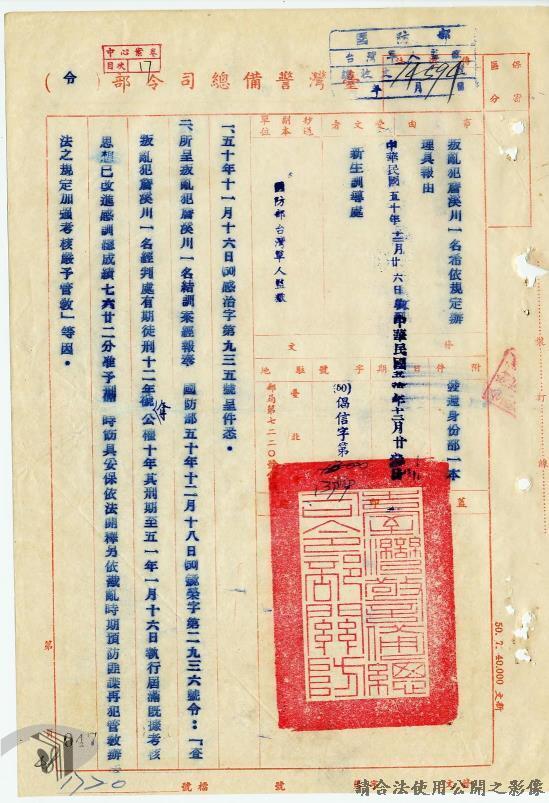 中心案卷
目次 17
國防部
臺灣警備總司令部（令）
保密
區分
事由
受文者
抄送
副本
單位
叛亂犯詹溪川一名希依規定辦
理具報由
發還身份部一本
新生訓導處
國防部台灣軍人監獄
附件
日期
字號
駐地
中華民國
(50)偈信字第
臺北
郵局第七二二〇號
蓋印
一、五十年十一月十六日(50)感治字第九三五號呈件悉。
二、所呈叛亂犯詹溪川一名結訓案經報奉 國防部五十年十二月十八日(50)號令：「查
叛亂犯詹溪川一名經判處有期徒刑十二年褫公權十年其刑期至五一年一月十六日執行屆滿既據考核
思想已改進感訓總成績七六廿二分准予刑 時飭具妥保依法開釋另依戡亂時期預防匪諜再犯管教辦
法之規定加強考核嚴予管教」等因。
臺灣警備總司令部關防
裝訂線
50. 7. 40.000 史新
第
047
1720
檔號
請合法使用公開之影像